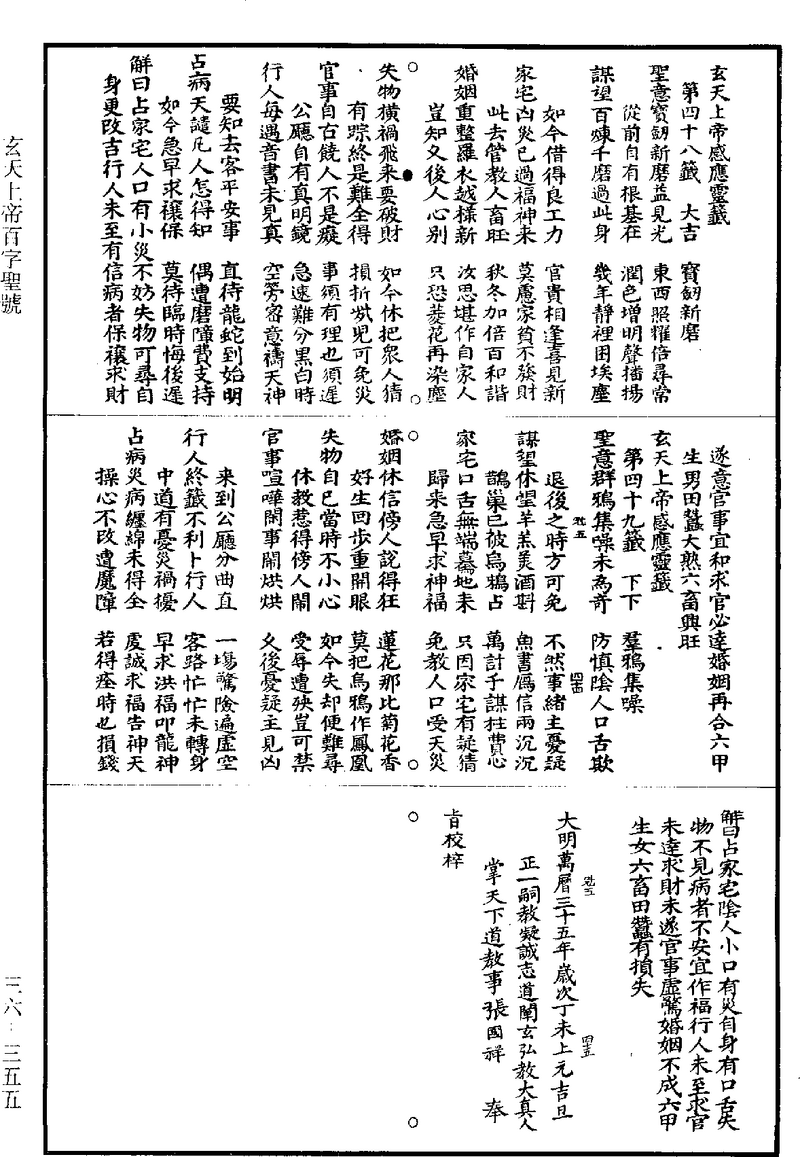 玄天上帝感應靈籤
第四十八籤　大吉　寶劒新磨
聖意寶劒新磨益見光　東西照耀倍尋常
從前自有根基在　潤色增明聲播揚
謀望百煉千磨過此身　幾年靜裡困埃塵
如今借得良工力　官貴相逢喜見新
家宅凶災已過福神來　莫慮家貧不發財
此去管教人畜旺　秋冬加倍百和諧
婚姻重整羅衣越樣新　汝思堪作自家人
豈知久後人心別　只恐菱花再染塵
失物橫禍飛來要破財　如今休把衆人猜
有踪終是難全得　損折烖兒可免災
官事自古饒人不是癡　事須有理也須遲
公廳自有真明鏡　急速難分黑白時
行人每遇音書未見真　空勞審意禱天神
要知去客平安事　直待龍蛇到始明
占病天譴凡人怎得知　偶遭磨障費支持
如今急早求禳保　莫待臨時悔後遲
解曰占家宅人口有小災不妨失物可尋自
身更改吉行人未至有信病者保禳求財
遂意官事宜和求官必達婚姻再合六甲
生男田蠶大熟六畜興旺
玄天上帝感應靈籤
第四十九籤　下下　羣鴉集噪
聖意群鴉集噪未為奇　防慎陰人口舌欺
退後之時方可免　不然事緒主憂疑
謀望休望羊羔美酒斟　魚書鴈信兩沉沉
鵲巢已被烏鴉占　萬計千謀枉費心
家宅口舌無端驀地來　只因家宅有疑猜
歸来急早求神福　免教人口受天災
婚姻休信傍人說得狂　蓮花那比菊花香
好生回步重開眼　莫把烏鴉作鳳凰
失物自已當時不小心　如今失却便難尋
休教惹得傍人鬧　受辱遭殃豈可禁
官事喧嘩閑事鬧烘烘　久後憂疑主見凶
来到公廳分曲直　一塲驚險遍虛空
行人終籤不利卜行人　客路忙忙未轉身
中道有憂災禍擾　早求洪福叩龍神
占病災病纏綿未得全　虔誠求福告神天
操心不改遭魔障　若得痊時也損錢
解曰占家宅陰人小口有災自身有口舌失
物不見病者不安宜作福行人未至求官
未達求財未遂官事虛驚婚姻不成六甲
生女六畜田蠶有損失
大明萬曆三十五年歲次丁未上元吉旦
正一嗣教凝誠志道闡玄弘教大真人
掌天下道教事張國祥　奉
旨校梓
玄天上帝百字聖號
三六·三五五